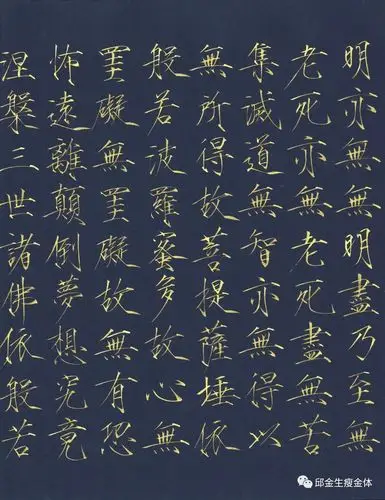 明亦無無明盡乃至無
老死亦無老死盡無苦
集滅道無智亦無得以
無所得故菩提薩埵依
般若波羅蜜多故心無
罣礙無罣礙故無有恐
怖遠離顛倒夢想究竟
涅槃三世諸佛依般若
邱金生瘦金体